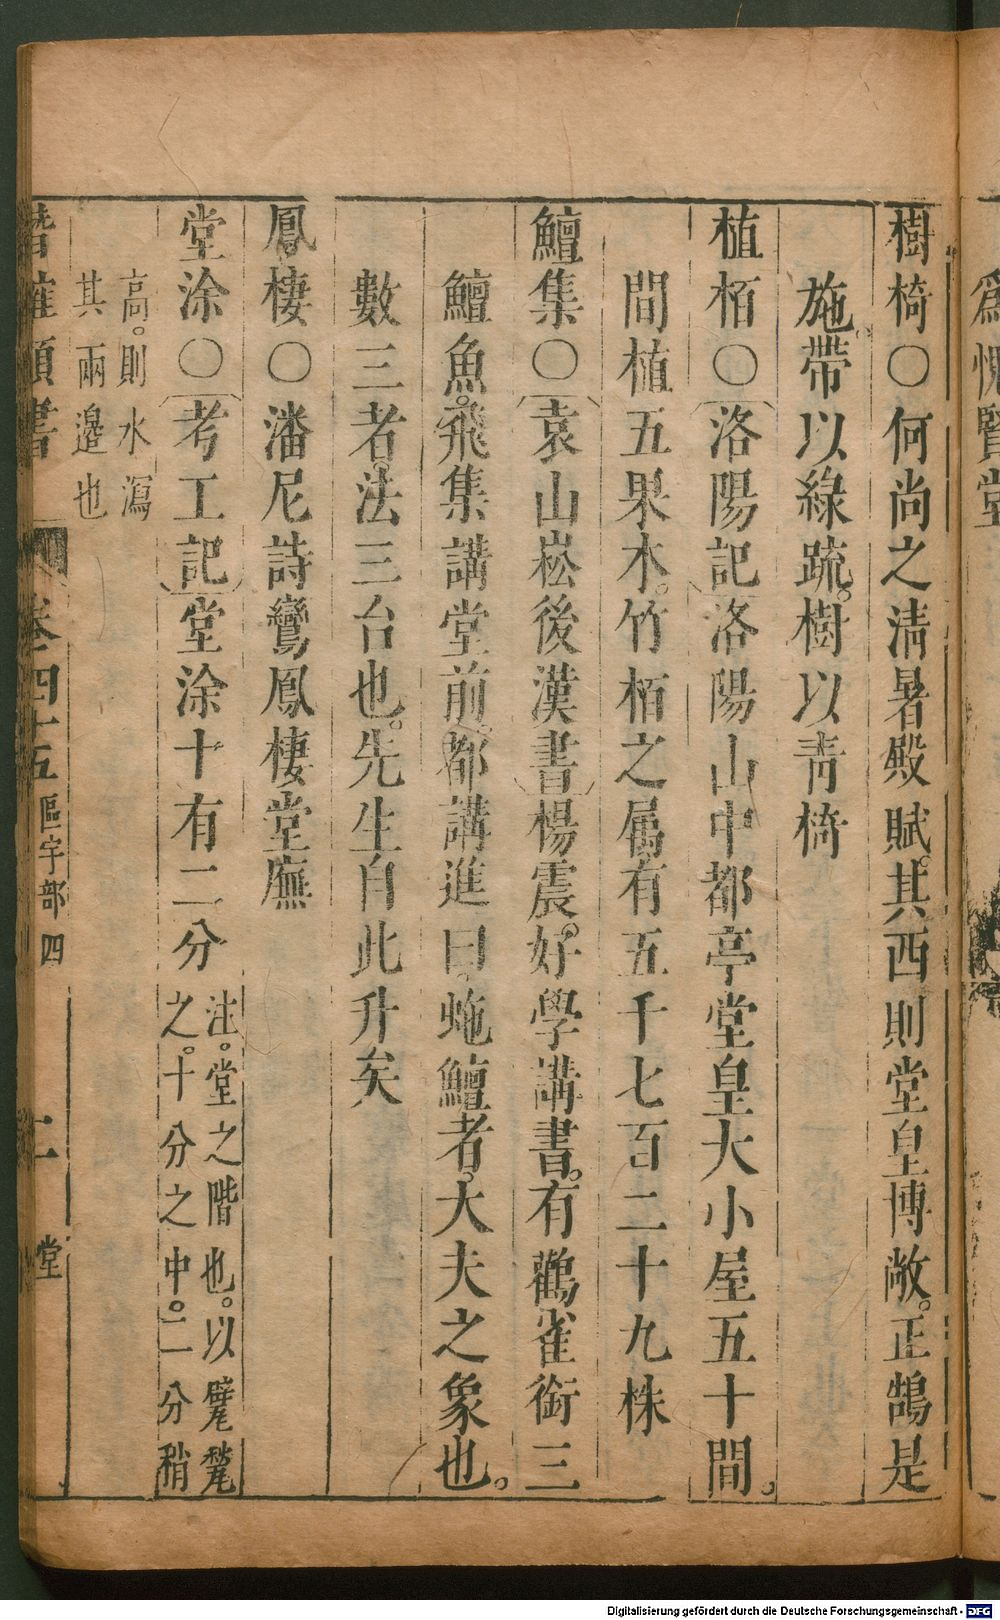 爲
堂
樹椅○何尚之淸暑殿賦。其西則堂皇博敞。正鵠是
施帶以綠疏。樹以靑椅
植栢○洛陽記洛陽山中都亭堂皇大小屋五十間。
間植五果木。竹栢之属有五千七百二十九株
鱣集○袁山崧後漢書楊震。好學講書。有鸛雀銜三
鱣魚。飛集講堂前。都講進曰。虵鱣者。大夫之象也。
數三者。法三台也。先生自此升矣
鳳棲○潘尼詩鸞鳳棲堂廡
堂涂○考工記堂涂十有二分
注。堂之階也。以
之。十分之中。二分稍
高。則水瀉
其兩邊也
潛確類書 卷四十五 區宇部四 二 堂
Digitalisierung gefördert durch die Deutsche Forschungsgemeinschaft - DFG